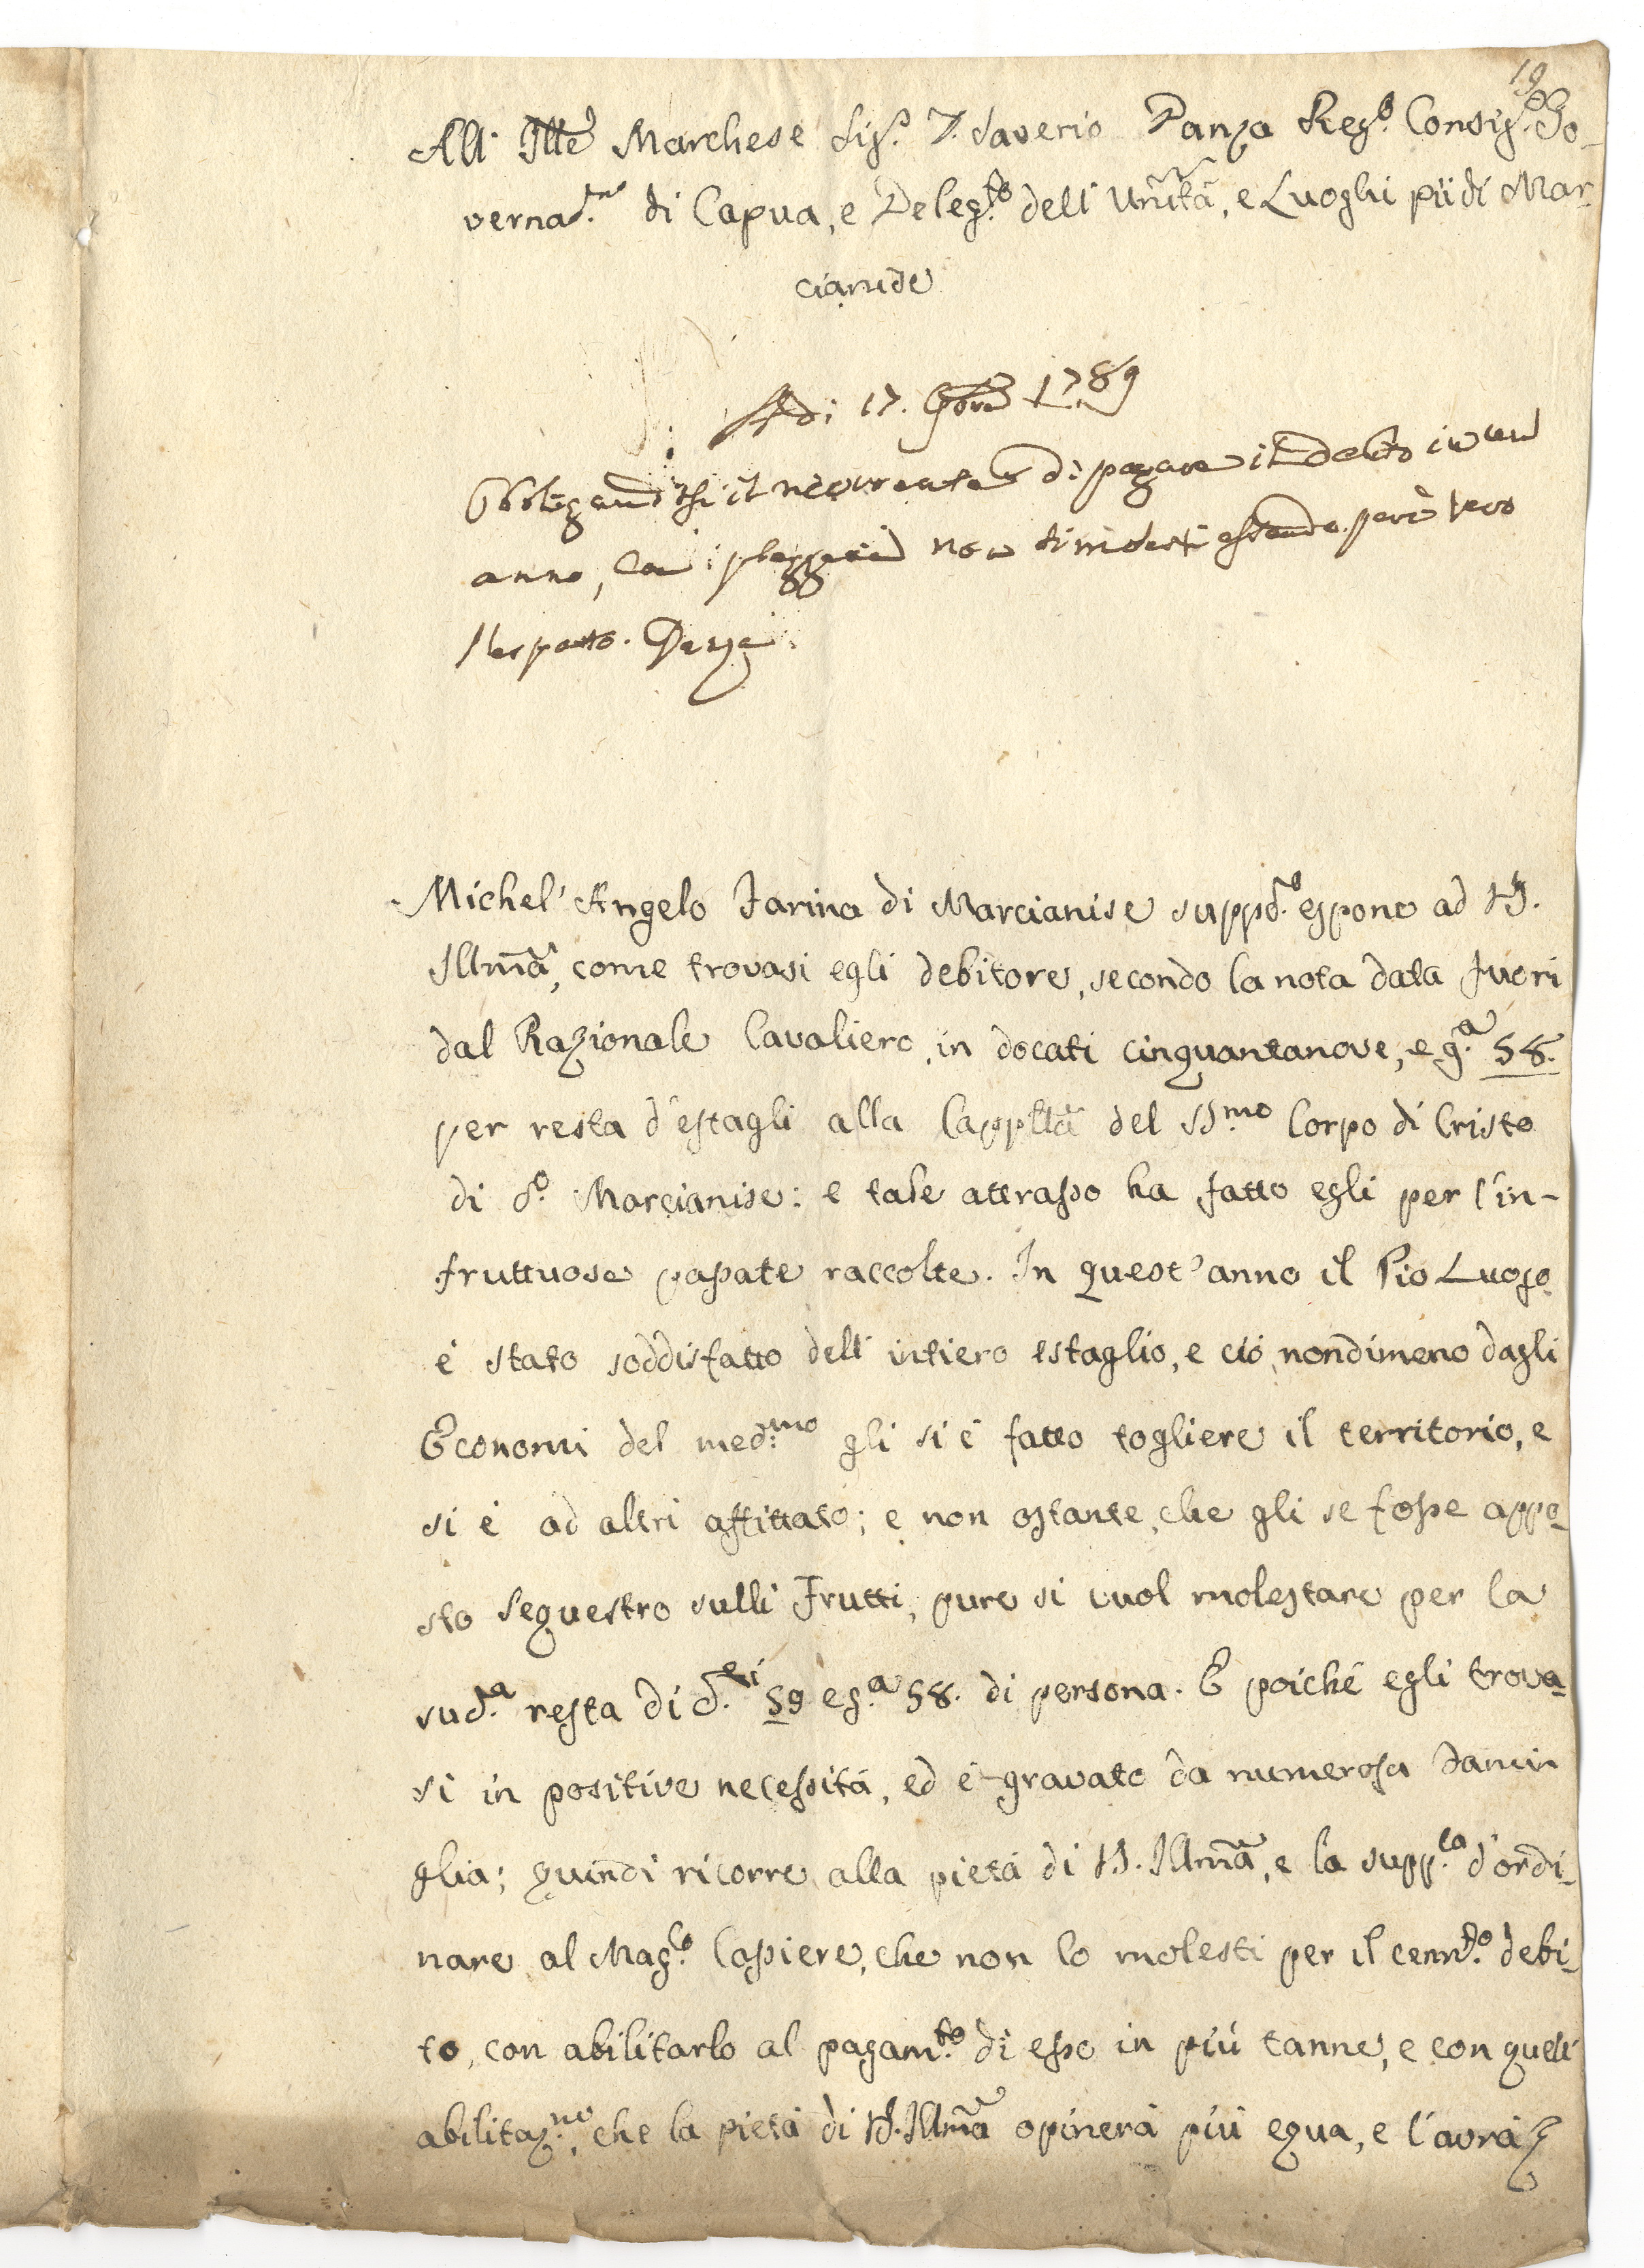 19
All' Ill.e Marchese Sig.r D. Saverio Danza Reg.o Consig.re Go-
vernat.re di Capua, e Deleg.to dell' Univ.tà, e Luoghi pii di Mar-
cianise
A di 17. 8bre 1789
Obbligandosi il ricorrente di pagare il debito in un
anno, con pleggeria non si molesti essendo però vero
l'esposto. Danza
Michel' Angelo Farina di Marcianise supp.do espone ad V.S.
Ill.ma, come trovasi egli debitore, secondo la nota data fuori
dal Razionale Cavaliero, in docati cinquantanove, e g.a 58.
per resta d'estagli alla Cappella del SS.mo Corpo di Cristo
di d.o Marcianise: e tale attrasso ha fatto egli per l'in-
fruttuose passate raccolte. In quest'anno il Pio Luogo
è stato soddisfatto dell' intiero estaglio, e ciò nondimeno dagli
Economi del med.mo gli si è fatto togliere il territorio, e
si è ad altri affittato; e non ostante, che gli se fosse appo-
sto sequestro sulli Frutti, pure si vuol molestare per la
sud.a resta di d.ti 59 e g.a 58. di persona. E poiché egli trova-
si in positive necessità, ed è gravato da numerosa Fami-
glia; quindi ricorre alla pietà di V.S. Ill.ma, e la supp.ca d'ordi-
nare al Mag.co Cassiere, che non lo molesti per il cenn.to debi-
to, con abilitarlo al pagam.to di esso in più tanne, e con quell'
abilitaz.ne, che la pietà di V.S. Ill.ma opinerà più equa, e l'avrà